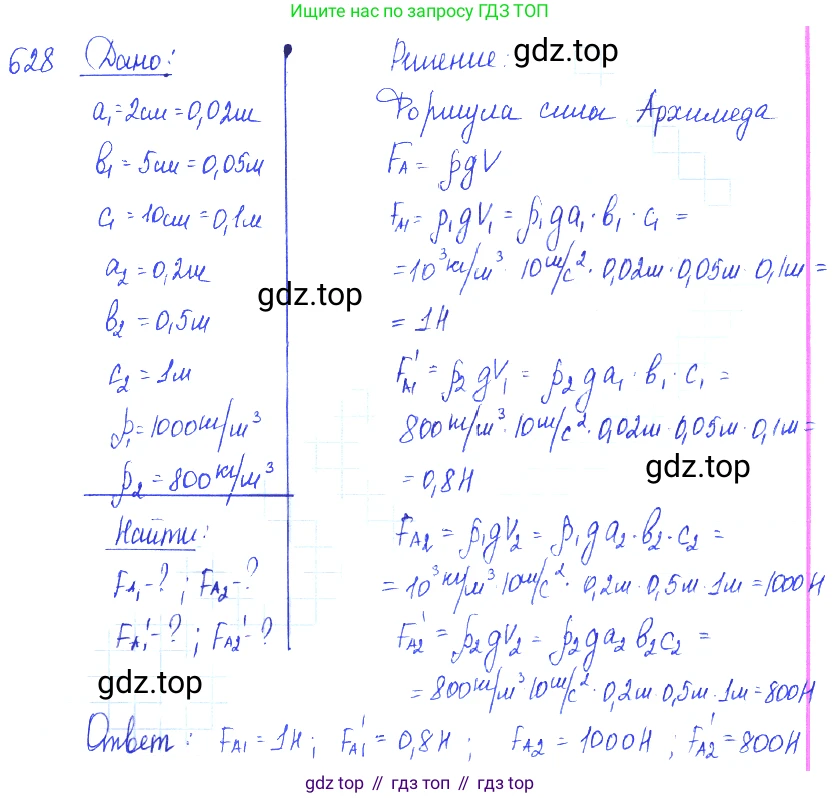 Ищите нас по запросу ГДЗ ТОП
628 Дано:
a₁=2см=0,02м
в₁=5см=0,05м
c₁=10см=0,1м
a₂=0,2м
в₂=0,5м
c₂=1м
ρ₁=1000кг/м³
ρ₂=800кг/м³
Найти:
F_A₁-?; F_A₂-?
F_A₁'-?; F_A₂'-?
Решение:
Формула силы Архимеда
F_A = ρgV
F_A1 = ρ₁gV₁ = ρ₁ga₁·в₁·c₁ =
=10³кг/м³·10м/с²·0,02м·0,05м·0,1м=
= 1Н
F_A1' = ρ₂gV₁ = ρ₂ga₁·в₁·c₁ =
800кг/м³·10м/с²·0,02м·0,05м·0,1м=
= 0,8Н
F_A2 = ρ₁gV₂ = ρ₁ga₂·в₂·c₂ =
= 10³кг/м³·10м/с²·0,2м·0,5м·1м=1000Н
F_A2' = ρ₂gV₂ = ρ₂ga₂в₂c₂ =
= 800кг/м³10м/с²·0,2м·0,5м·1м=800Н
Ответ: F_A1=1Н; F_A1'=0,8Н; F_A2=1000Н; F_A2'=800Н
gdz.top
gdz.top
gdz.top
gdz.top
gdz топ // гдз топ // gdz.top